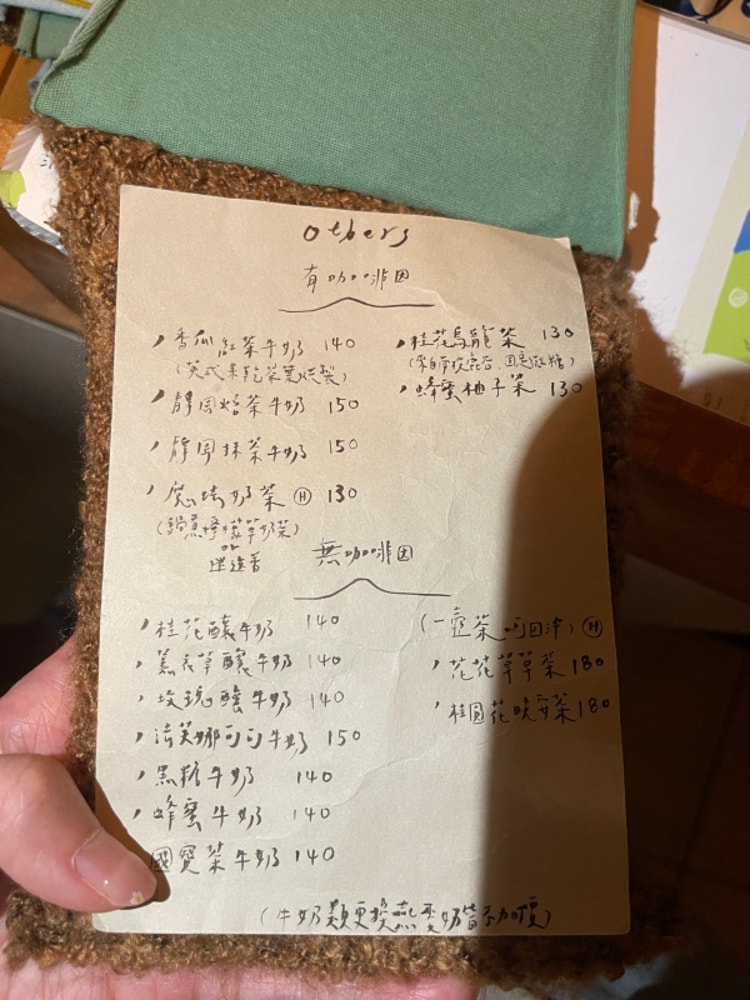 others
有咖啡因
香瓜紅茶牛奶 140
(英式果乾茶葉燻製)
靜岡焙茶牛奶 150
靜岡抹茶牛奶 150
奶茶 Ⓗ 130
(鍋煮檸檬草奶茶)
or
桂花烏龍茶 130
蜂蜜柚子茶 130
無咖啡因
桂花釀牛奶 140
薰衣草釀牛奶 140
玫瑰釀牛奶 140
法芙娜可可牛奶 150
黑糖牛奶 140
蜂蜜牛奶 140
國寶茶牛奶 140
(一壺茶可回沖) Ⓗ
花花草草茶 180
桂圓花晚安茶 180
(牛奶類更換燕麥奶皆不加價)